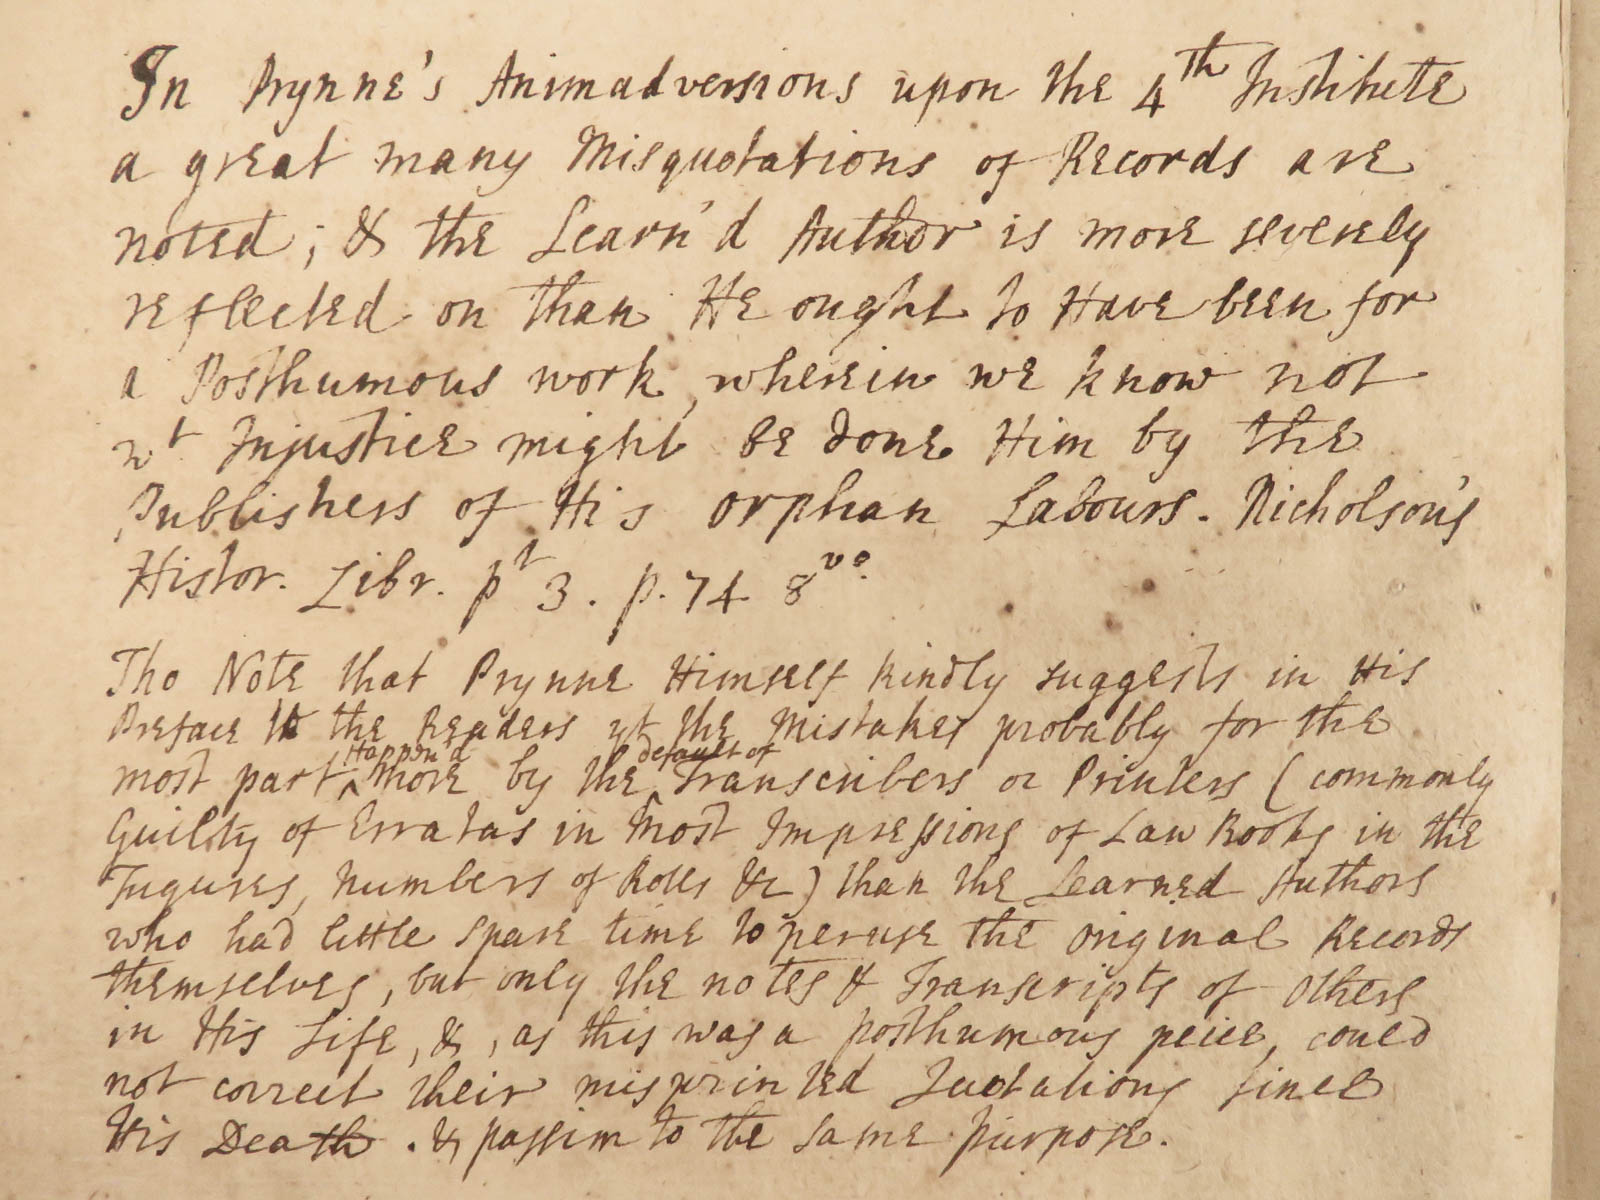 In Prynne's Animadversions upon the 4th Institute
a great many Misquotations of Records are
noted; & the Learn'd Author is more severely
reflected on than He ought to Have been for
a Posthumous work, wherein we know not
wt Injustice might be done Him by the
Publishers of His orphan Labours. Nicholson's
Histor. Libr. pt 3. p. 74 8vo.
Tho Note that Prynne Himself kindly suggests in His
Preface to the Readers yt the Mistakes probably for the
Happn'd default of
most part more by the Transcribers or Printers (commonly
Guilty of Erratas in most Impressions of Law Books in the
Figures, Numbers of Rolls &c) than the Learned Authors
who had little spare time to peruse the original Records
themselves, but only the notes & Transcripts of others
in His Life, &, as this was a posthumous peice, could
not correct their misprinted Quotations since
His Death. & passim to the same purpose.